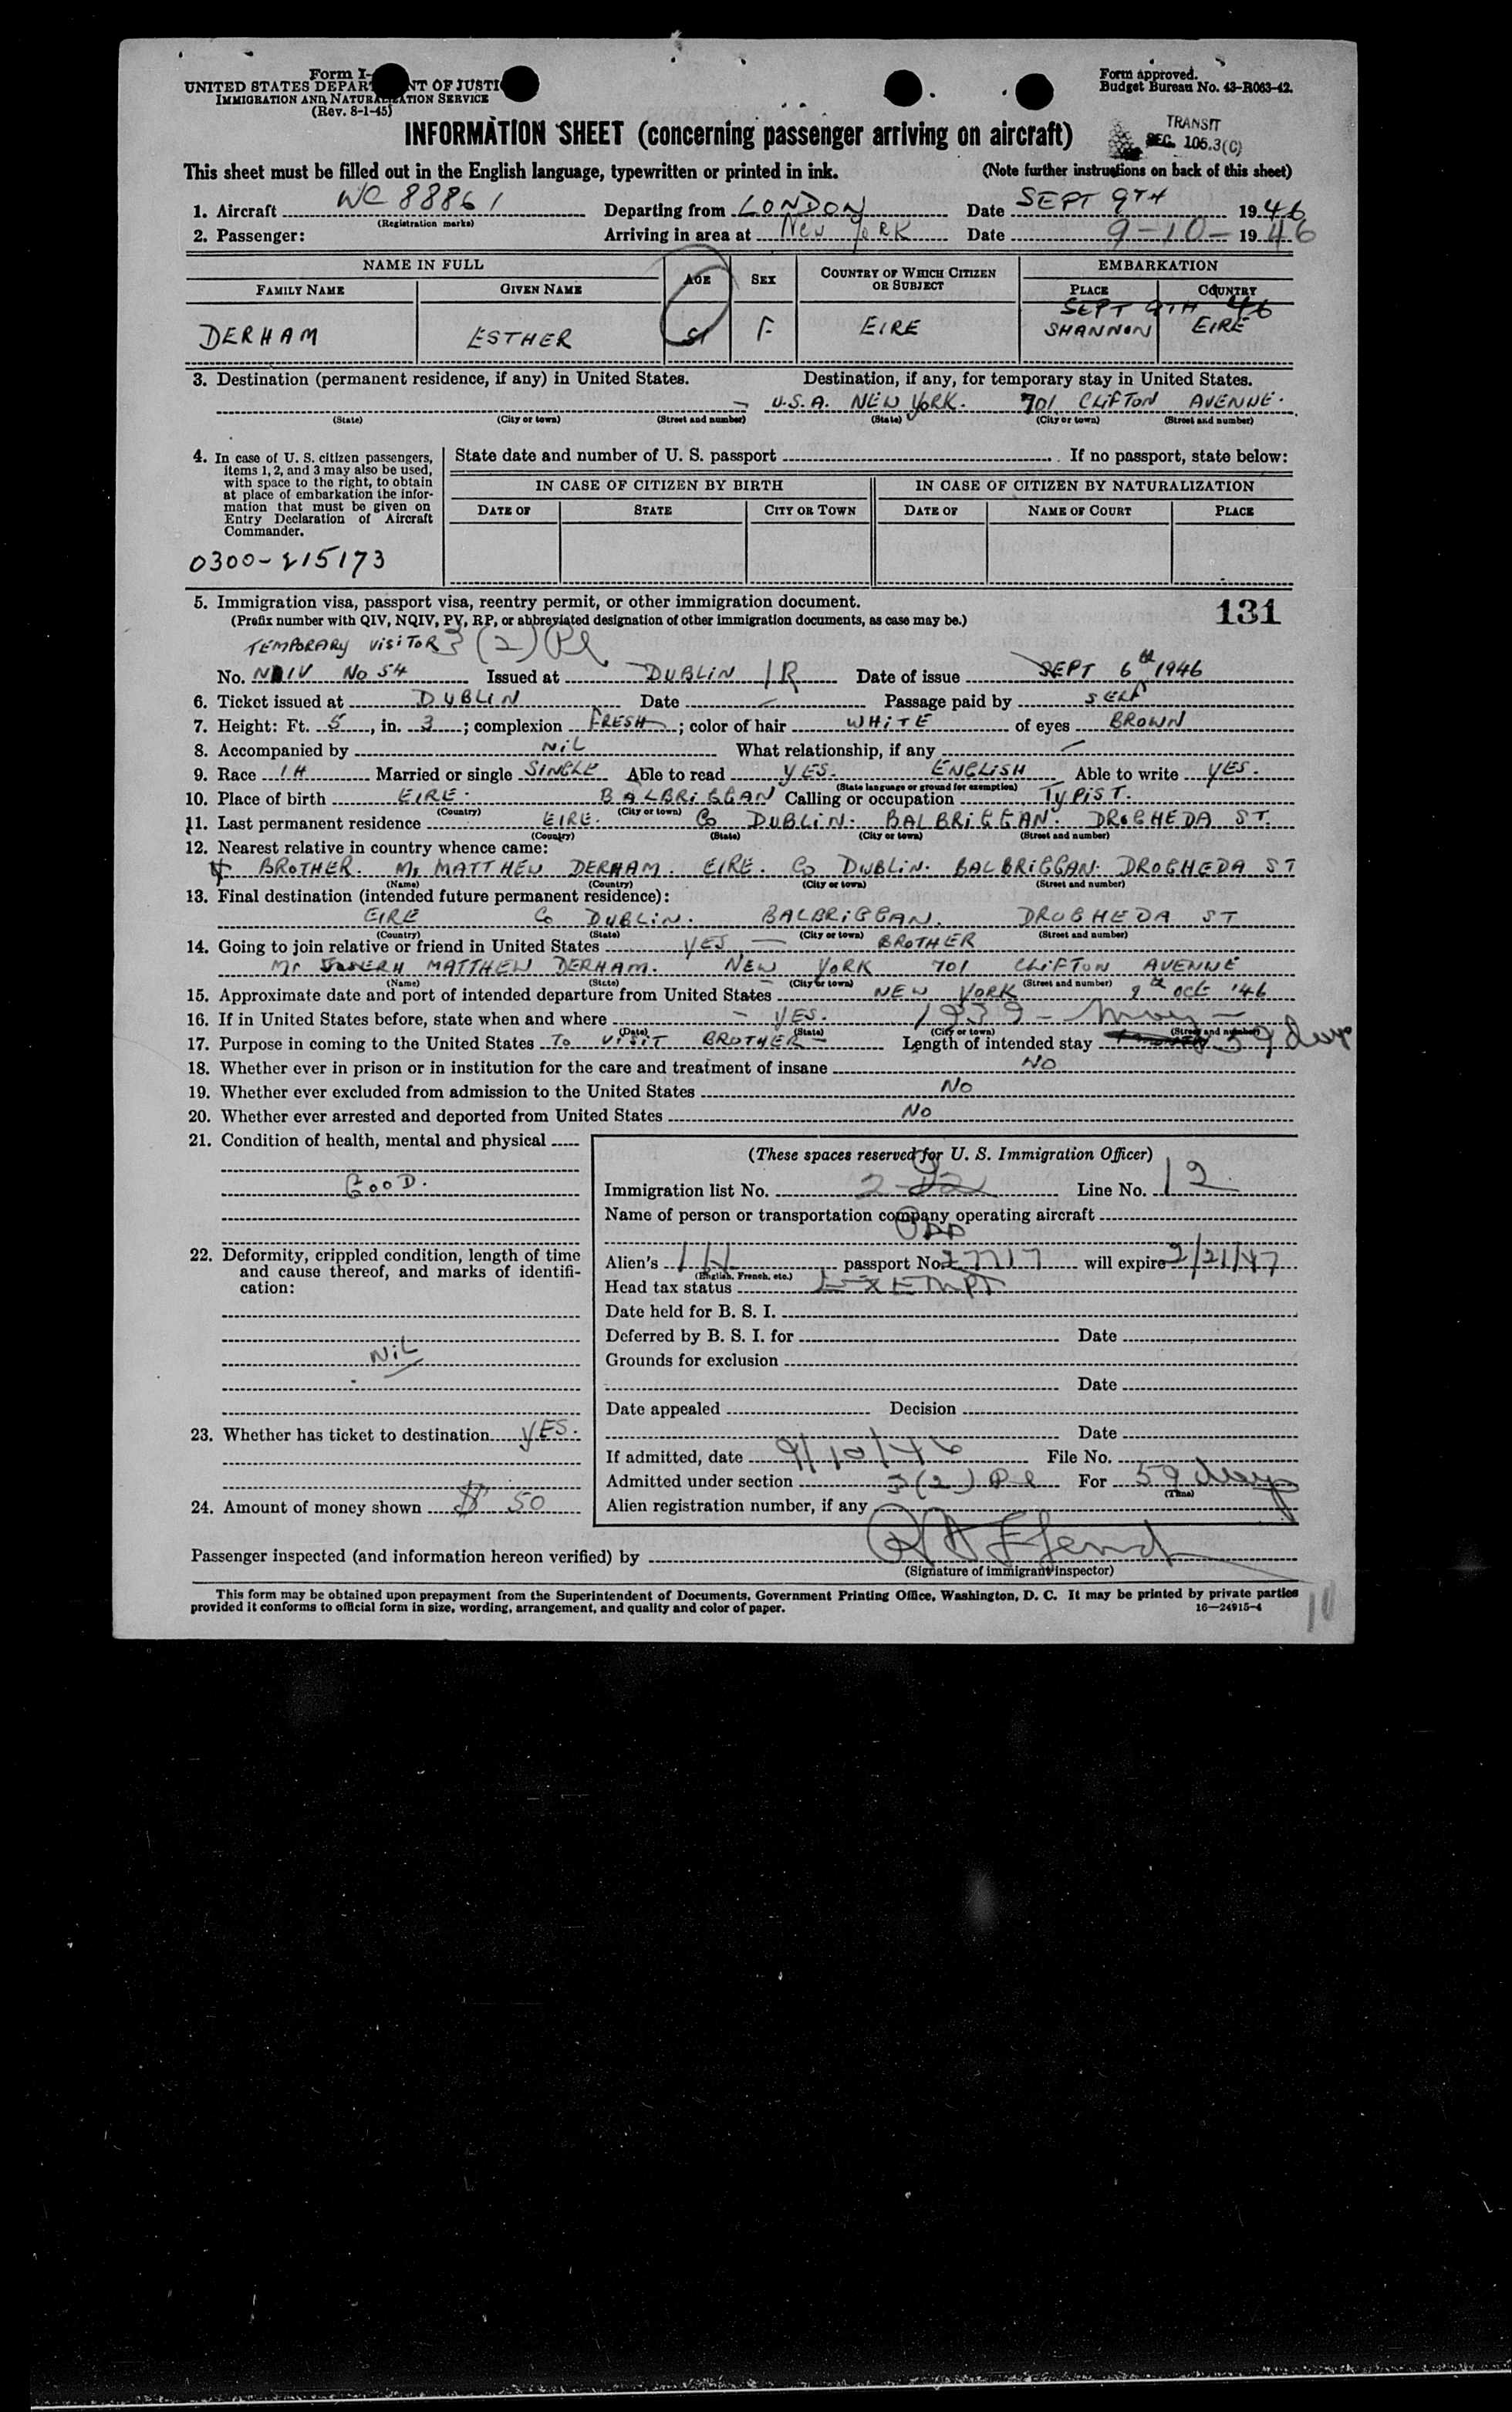 Form I-
UNITED STATES DEPAR NT OF JUSTI
IMMIGRATION AND NATURALIZATION SERVICE
(Rev. 8-1-45)
Form approved.
Budget Bureau No. 43-R063-42.
INFORMATION SHEET (concerning passenger arriving on aircraft)
TRANSIT
SEC. 105.3(C)
This sheet must be filled out in the English language, typewritten or printed in ink. (Note further instructions on back of this sheet)
1. Aircraft WC 88861 Departing from LONDON Date SEPT 9TH 1946
(Registration marks)
2. Passenger: Arriving in area at NEW YORK Date 9-10- 1946
NAME IN FULL AGE SEX COUNTRY OF WHICH CITIZEN OR SUBJECT EMBARKATION
FAMILY NAME GIVEN NAME PLACE COUNTRY
SEPT 9TH 46
DERHAM ESTHER 51 F. EIRE SHANNON EIRE
3. Destination (permanent residence, if any) in United States. Destination, if any, for temporary stay in United States.
— U.S.A. NEW YORK. 701 CLIFTON AVENUE.
(State) (City or town) (Street and number) (State) (City or town) (Street and number)
4. In case of U. S. citizen passengers, items 1, 2, and 3 may also be used, with space to the right, to obtain at place of embarkation the information that must be given on Entry Declaration of Aircraft Commander.
State date and number of U. S. passport If no passport, state below:
IN CASE OF CITIZEN BY BIRTH IN CASE OF CITIZEN BY NATURALIZATION
DATE OF STATE CITY OR TOWN DATE OF NAME OF COURT PLACE
0300-215173
5. Immigration visa, passport visa, reentry permit, or other immigration document. 131
(Prefix number with QIV, NQIV, PV, RP, or abbreviated designation of other immigration documents, as case may be.)
TEMPORARY VISITOR 3(2) Pl
No. NQIV No 54 Issued at DUBLIN IR Date of issue SEPT 6th 1946
6. Ticket issued at DUBLIN Date — Passage paid by SELF
7. Height: Ft. 5, in. 3; complexion FRESH; color of hair WHITE of eyes BROWN
8. Accompanied by NIL What relationship, if any —
9. Race IH Married or single SINGLE Able to read YES. ENGLISH Able to write YES.
(State language or ground for exemption)
10. Place of birth EIRE. BALBRIGGAN Calling or occupation TYPIST.
(Country) (City or town)
11. Last permanent residence EIRE. Co DUBLIN. BALBRIGGAN. DROGHEDA ST.
(Country) (State) (City or town) (Street and number)
12. Nearest relative in country whence came:
BROTHER. Mr MATTHEW DERHAM. EIRE. Co DUBLIN. BALBRIGGAN. DROGHEDA ST
(Name) (Country) (City or town) (Street and number)
13. Final destination (intended future permanent residence):
EIRE Co DUBLIN. BALBRIGGAN. DROGHEDA ST
(Country) (State) (City or town) (Street and number)
14. Going to join relative or friend in United States YES — BROTHER
Mr JOSEPH MATTHEW DERHAM. NEW YORK 701 CLIFTON AVENUE
(Name) (State) (City or town) (Street and number)
15. Approximate date and port of intended departure from United States NEW YORK 9th OCT '46
16. If in United States before, state when and where - YES. 1939 - May -
(Date) (State) (City or town) (Street and number)
17. Purpose in coming to the United States TO VISIT BROTHER — Length of intended stay 59 days
18. Whether ever in prison or in institution for the care and treatment of insane NO
19. Whether ever excluded from admission to the United States NO
20. Whether ever arrested and deported from United States NO
21. Condition of health, mental and physical
GOOD.
22. Deformity, crippled condition, length of time and cause thereof, and marks of identification:
NIL
23. Whether has ticket to destination YES.
24. Amount of money shown $ 50
(These spaces reserved for U. S. Immigration Officer)
Immigration list No. 2 Line No. 12
Name of person or transportation company operating aircraft
Alien's IH passport No. 27717 will expire 2/21/47
(English, French, etc.)
Head tax status EXEMPT
Date held for B. S. I.
Deferred by B. S. I. for Date
Grounds for exclusion
Date
Date appealed Decision
Date
If admitted, date 9/10/46 File No.
Admitted under section 3(2) Pl For 59 days
(Time)
Alien registration number, if any
Passenger inspected (and information hereon verified) by
(Signature of immigrant inspector)
This form may be obtained upon prepayment from the Superintendent of Documents, Government Printing Office, Washington, D. C. It may be printed by private parties
provided it conforms to official form in size, wording, arrangement, and quality and color of paper. 16—24915-4
10